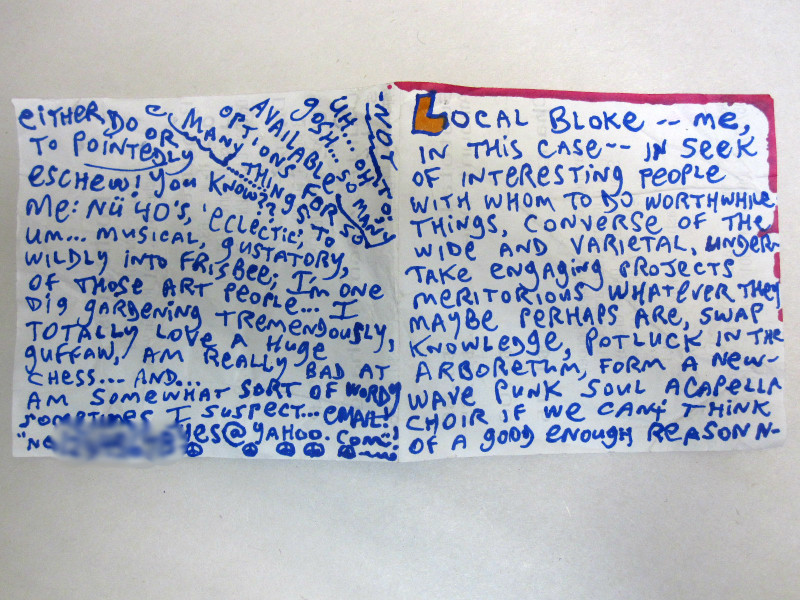 LOCAL BLOKE -- ME,
IN THIS CASE -- IN SEEK
OF INTERESTING PEOPLE
WITH WHOM TO DO WORTHWHILE
THINGS, CONVERSE OF THE
WIDE AND VARIETAL, UNDER-
TAKE ENGAGING PROJECTS
MERITORIOUS WHATEVER THEY
MAYBE PERHAPS ARE, SWAP
KNOWLEDGE, POTLUCK IN THE
ARBORETUM, FORM A NEW-
WAVE PUNK SOUL ACAPELLA
CHOIR IF WE CAN'T THINK
OF A GOOD ENOUGH REASON N-
-NOT TO!
UH... OH
GOSH... SO MANY
AVAILABLE
OPTIONS FOR SO
MANY THINGS TO
EITHER DO OR
TO POINTEDLY
ESCHEW! YOU KNOW??
ME: NÜ 40'S, 'ECLECTIC,'
UM... MUSICAL, GUSTATORY,
WILDLY INTO FRISBEE; I'M ONE
OF THOSE ART PEOPLE... I
DIG GARDENING TREMENDOUSLY,
TOTALLY LOVE A HUGE
GUFFAW, AM REALLY BAD AT
CHESS... AND...
AM SOMEWHAT SORT OF WORDY
SOMETIMES I SUSPECT... EMAIL!
yes@yahoo.com